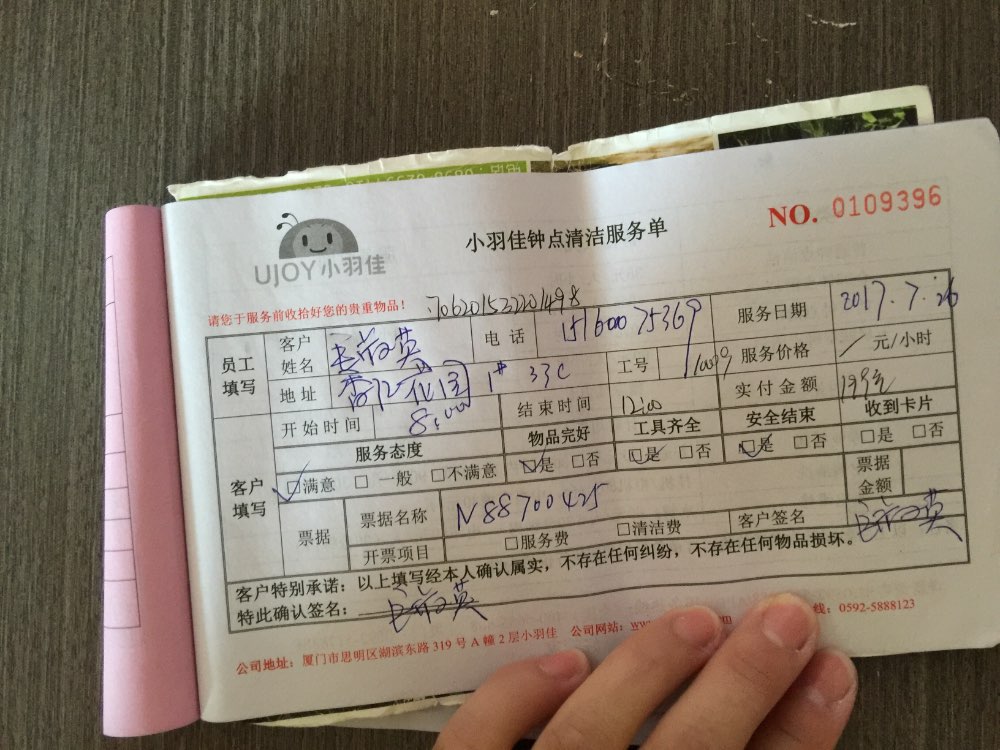 UJOY小羽佳
小羽佳钟点清洁服务单
NO. 0109396
请您于服务前收拾好您的贵重物品！
员工填写 客户姓名 英 电话 15160075369 服务日期 2017.7.26
地址 花园 1# 33C 工号 10009 服务价格 / 元/小时
开始时间 8:00 结束时间 12:00 实付金额 199元
客户填写 服务态度 物品完好 工具齐全 安全结束 收到卡片
☑满意 □一般 □不满意 ☑是 □否 ☑是 □否 ☑是 □否 □是 □否
票据 票据名称 N88700425 票据金额
开票项目 □服务费 □清洁费 客户签名 英
客户特别承诺：以上填写经本人确认属实，不存在任何纠纷，不存在任何物品损坏。
特此确认签名： 英
公司地址：厦门市思明区湖滨东路 319 号 A 幢 2 层小羽佳 公司网站： 线：0592-5888123